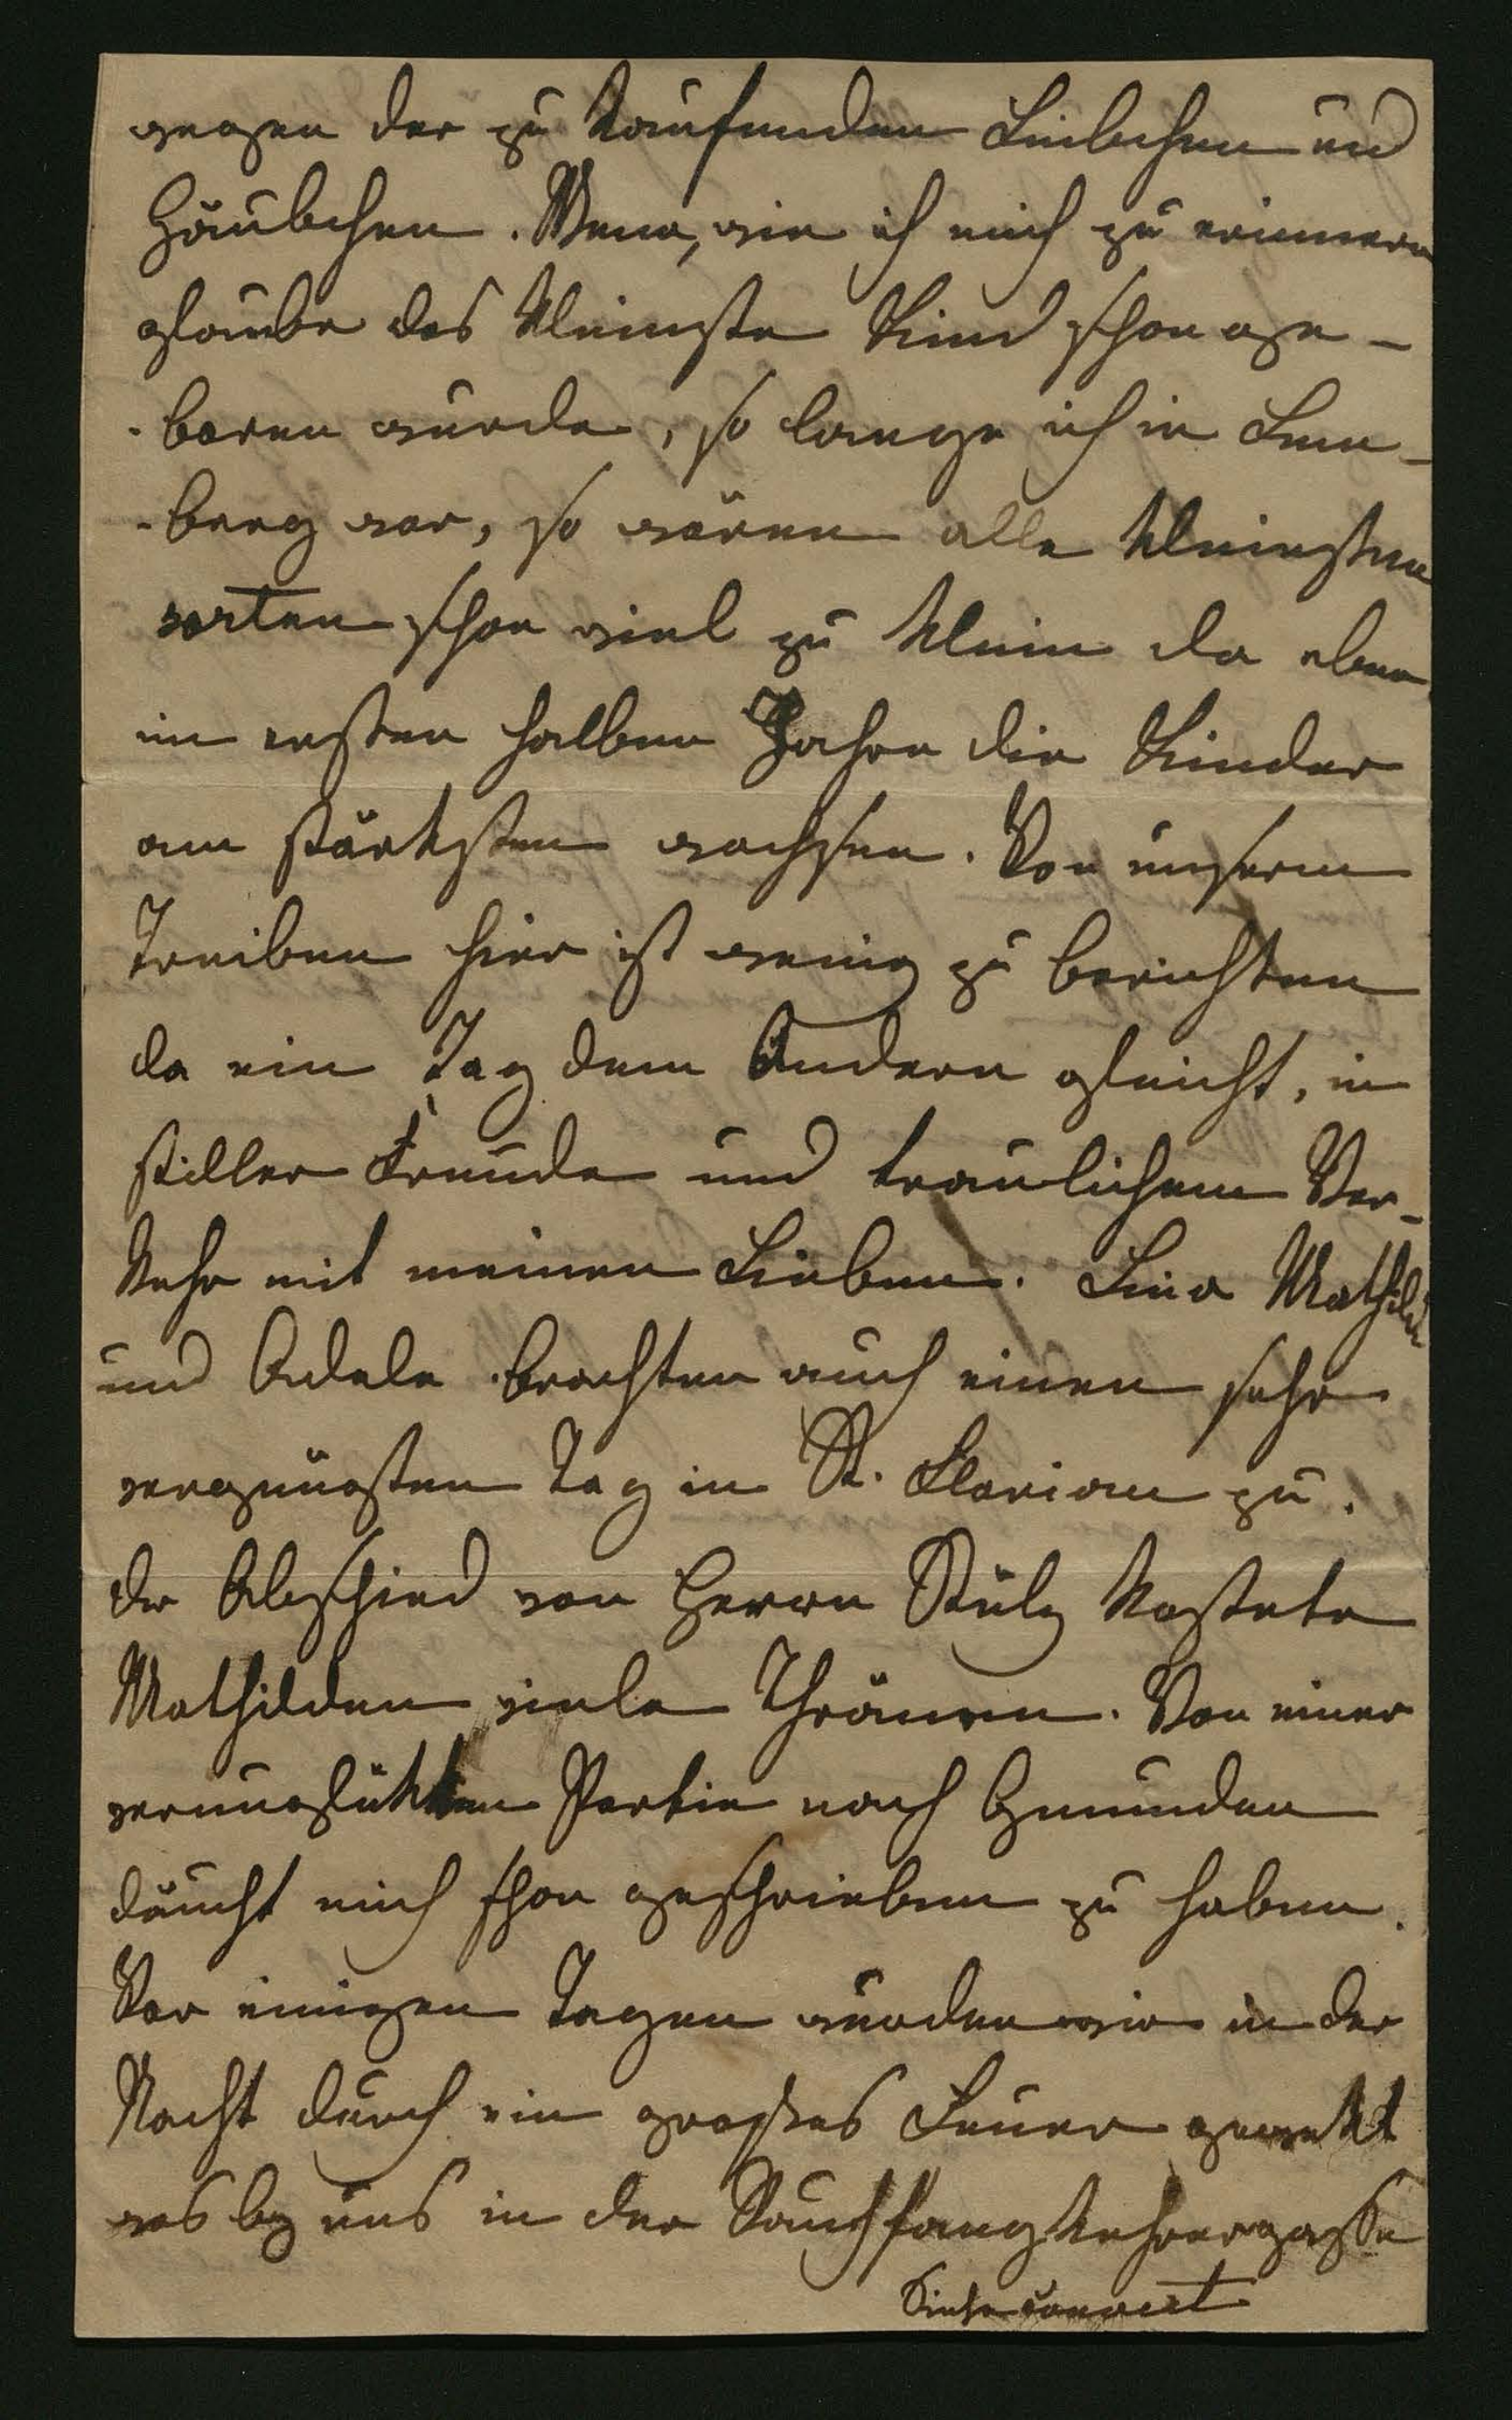 wegen der zu kaufenden Leibchen und
Häubchen. Wenn, wie ich mich zu erinnern
glaube das kleinste Kind schon ge-
-boren wurde, so lange ich in Lem-
-berg war, so wären alle kleinsten
sorten schon viel zu klein da eben
im ersten halben Jahre die Kinder
am stärksten wachsen. Von unserm
Treiben hier ist wenig zu berichten
da ein Tag dem Andern gleicht, in
stiller Freude und traulichem Ver-
kehr mit meinen Lieben. Lina Mathild
und Adele brachten auch einen sehr
vergnügten Tag in St. Florian zu.
der Abschied von Herrn Stülz kostete
Mathilden viele Thränen. Von einer
verunglükten Partie nach Gmunden
däucht mich schon geschrieben zu haben.
Vor einigen Tagen wurden wir in der
Nacht durch ein großes Feuer gewekt
was bey uns in der Rauchfangkehrergasse
Siehe Couvert